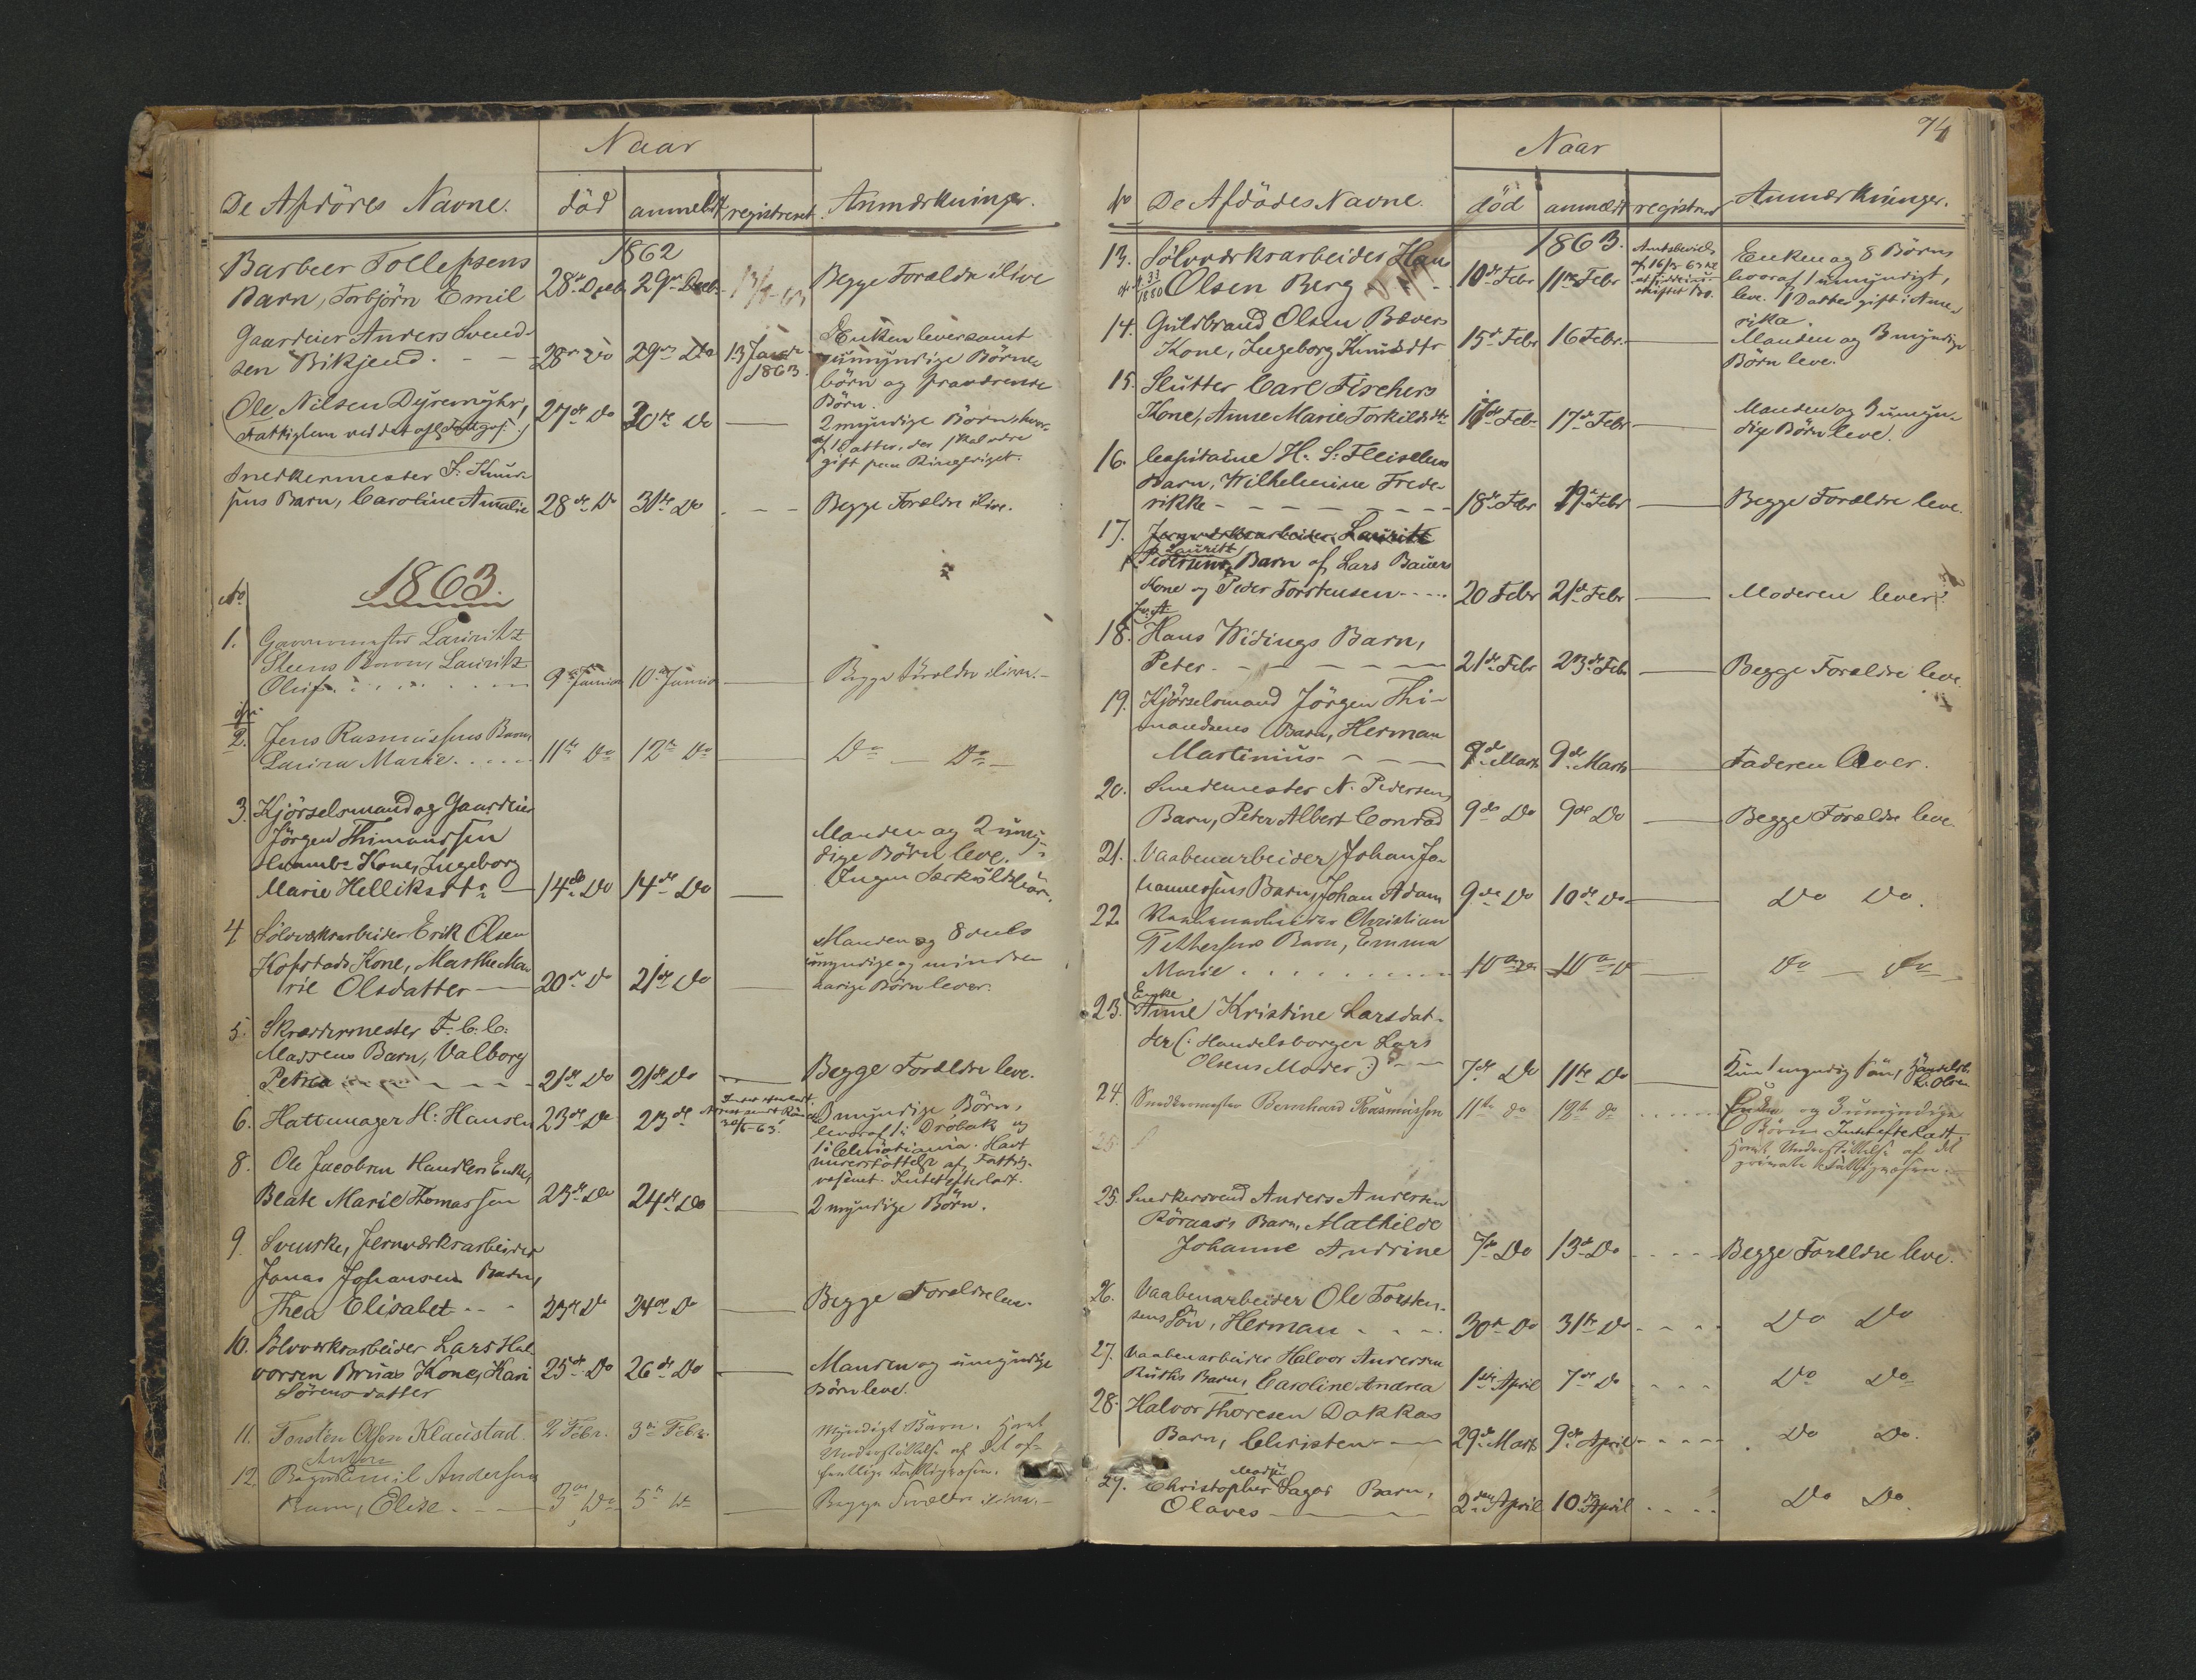 Naar
De Afdöres Navne. död anmeldt registreret. Anmærkninger.
1862
Barbeer Tollefsens
Barn, Torbjörn Emil 28de Decb. 29de Decb. 13/1-63 Begge Forældre ilive
Gaardeier Anders Svend-
sen Bikjend. 28de Do 29de Do 13 Januar 1863.
Enken lever samt
umyndige Börne-
börn og fraværende
Börn.
Ole Nilsen Dyremyhr, 27de Do 30te Do
Fattiglem ved det
2 myndige Börn, hvor-
af 1 Datter, der skal være
gift paa Ringeriget.
Snedkermester S. Knud-
sens Barn, Caroline Amalie 28de Do 31te Do Begge Forældre ilive.
1863.
No
1. Garvermester Lauritz
Steens Barn, Lauritz
Oluf 9de Januar 10de Januar Begge Forældre ilive.
2. Jens Rasmussens Barn,
Laura Marie 11te Do 12te Do Do Do
3. Kjörselsmand og Gaardeier
Jörgen Thimandsen
Kone, Ingeborg
Marie Helliksdtr 14de Do 14de Do
Manden og 2 umyn-
dige Börn leve.
Ingen Særkuldbörn.
4 Sölvværksarbeider Erik Olsen
Kopstads Kone, Marthe Ma-
rie Olsdatter 20de Do 21de Do
Manden og 8 dels
umyndige og mindre-
aarige Börn lever.
5. Skræddermester F. C. C.
Madsens Barn, Valborg
Petrea 21de Do 21de Do Begge Forældre leve.
6. Hattemager H: Hansen 23de Do 23de 30/5-63.
3 myndige Börn,
hvoraf 1 i Dröbak og
1 i Christiania. Havt
understöttelse af Fattig-
væsenet. Intet efterladt.
8. Ole Jacobsen Enke,
Beate Marie Thomassen 23de Do 24de Do 2 myndige Börn.
9. Svenske, Jernværksarbeider
Jonas Johansens Barn,
Thea Elisabet 23de Do 24de Do Begge Forældre leve.
10. Sölvværksarbeider Lars Hal-
vorsen Bruas Kone, Kari 25de Do 26de Do
Sörensdatter
Manden og umyndige
Börn leve.
11. Torsten Olsen Klaustad. 2 Febr. 3de Febr.
Myndigt Barn. Havt
Understöttelse af det of-
fentlige Fattigvæsen.
12. Emil Andersens
Barn, Elise 3de Do 5te Do Begge Forældre ilive.
74
Naar
No De Afdödes Navne. död anmeldt registreret Anmærkninger.
1863.
13. Sölvværksarbeider Hans
Olsen Berg 10de Febr 11te Febr
Enken og 8 Börn
hvoraf 1 umyndigt,
leve. 1 Datter gift i Ame-
rika.
14. Guldbrand Olsen Bævers
Kone, Ingeborg Knudsdtr 15de Febr 16 Febr.
Manden og 3 myndige
Börn leve.
15. Slutter Carl Fischers
Kone, Anne Marie Torkildsdtr 17de Febr
Manden og 3 umyn-
dige Börn leve.
16. Capitaine H. S. Fleischers
Barn, Wilhelmine Frede-
rikke 18de Febr 19de Febr Begge Forældre leve.
17. Jernværksarbeider Lauritz
Lauritz
Pedersens, Barn af Lars Bauers
Kone og Peder Torstensen 20 Febr 21de Febr Moderen lever.
18. Hans Widings Barn,
Peter 21de Febr 23de Febr Begge Forældre leve.
19. Kjörselsmand Jörgen Thi-
mandsens Barn, Herman
Martinius 9de Marts 9de Marts Faderen lever.
20. Smedemester N. Pedersens
Barn, Peter Albert Conrad 9de Do 9de Do Begge Forældre leve.
21. Vaabenarbeider Johan Jo-
hannessens Barn, Johan Adam 9de Do 10de Do Do Do.
22 Vaabenarbeider Christian
Pettersens Barn, Emma
Marie 10de Do 10de Do Do Do
23. Enke
Anne Kristine Larsdat-
ter (: Handelsborger Lars
Olsens Moder :) 7de Do 11te Do Kun 1 myndig Sön, Handelsb. L. Olsen
24. Snedkermester Bernhard Rasmussen 11te do 12te do
Enke og 3 umyndige
Börn. Intet efterladt.
Havt Understöttelse af det
private Fattigvæsen.
25. Snedkersvend Anders Andersen
Röraas's Barn, Mathilde
Johanne Andrine 7de Do 13de Do Begge Forældre leve.
26. Vaabenarbeider Ole Torsten-
sens Sön, Herman 30te Do 31te Do Do Do
27. Vaabenarbeider Halvor Andersen
Ruths Barn, Caroline Andrea 1ste April 7de Do Do Do
28. Halvor Thoresen Dokkas
Barn, Christen 29de Marts 9de April Do Do.
29. Christopher Sagas Barn,
Olaves 2den April 10de April Do Do.